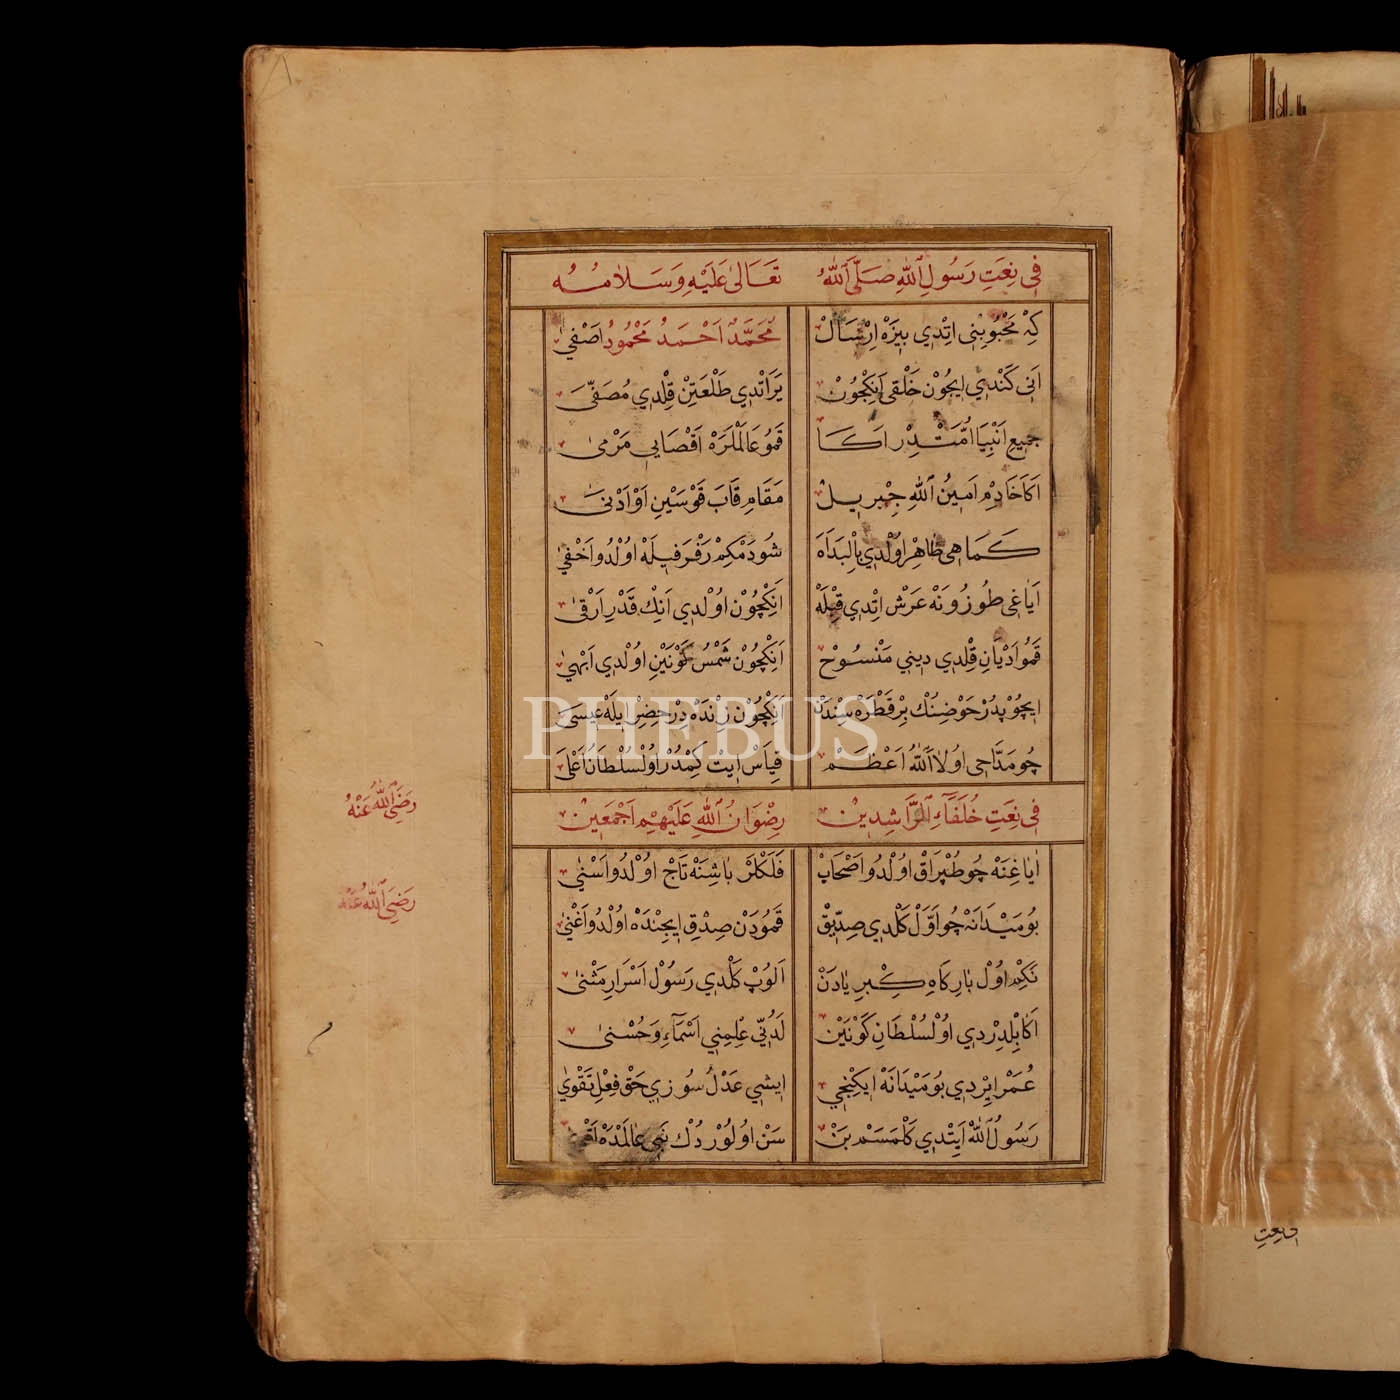 في نعت رسول الله صلى الله تعالى عليه وسلامه
كه محبوبني اتدي بيزه ارسال محمد احمد محمود اصفى
اني كندي ايچون خلقي انكچون يراتدي طلعتن قلدي مصفى
جميع انبيا امتدر اكا قمو عالملره اقصايي مرمى
اكا خادم امين الله جبريل مقام قاب قوسين او ادنى
كماهي ظاهر اولدي بالبداه شودمكم رفرفيله اولدو اخفى
اياغي طوزونه عرش اتدي قبله انكچون اولدي انك قدر ارقى
قمو اديان قلدي ديني منسوخ انكچون شمس كونين اولدي ابهى
ايچوپدر حوضنك بر قطره سندن انكچون زنده در خضر ايله عيسى
چو مداحي اولا الله اعظم قياس ايت كمدر اول سلطان اعلى
في نعت خلفاء الراشدين رضوان الله عليهم اجمعين
اياغنه چو طپراق اولدو اصحاب فلكلر باشنه تاج اولدو اسنى
بو ميدانه چو اول كلدي صديق قمودن صدق ايچنده اولدو اغنى
نكم اول باركاه كبريادن الوپ كلدي رسول اسرار مثنى
اكا بلدردي اول سلطان كونين لدني علمني اسماء وحسنى
عمر ايردي بو ميدانه ايكنجي ايشي عدل سوزي حق فعل تقوى
رسول الله ايتدي كلمسم بن سن اولوردك نبي عالمده
رضي الله عنه
رضي الله عنه
في نعت
PHEBUS